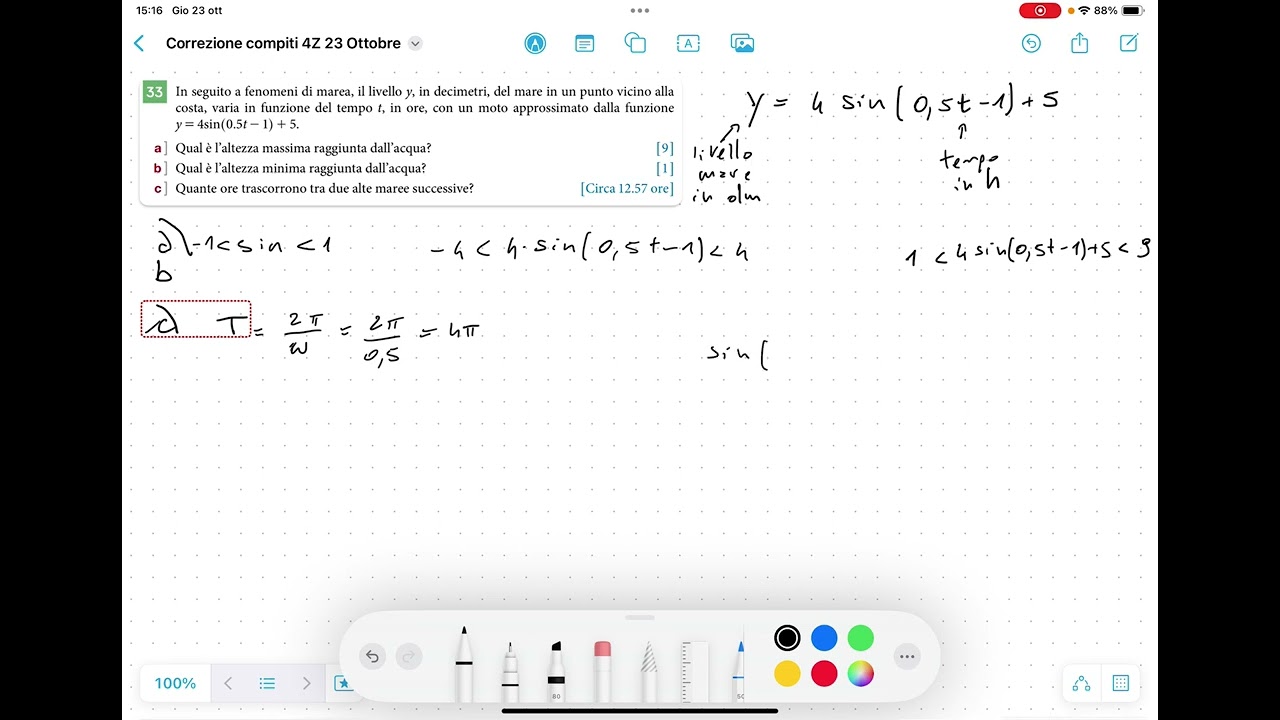 15:16 Gio 23 ott
88%
Correzione compiti 4Z 23 Ottobre
33 In seguito a fenomeni di marea, il livello y, in decimetri, del mare in un punto vicino alla
costa, varia in funzione del tempo t, in ore, con un moto approssimato dalla funzione
y = 4sin(0.5t − 1) + 5.
a] Qual è l'altezza massima raggiunta dall'acqua? [9]
b] Qual è l'altezza minima raggiunta dall'acqua? [1]
c] Quante ore trascorrono tra due alte maree successive? [Circa 12.57 ore]
y = 4 sin(0,5t-1)+5
livello
mare
in dm
tempo
in h
a) -1< sin <1
-4 < 4·sin(0,5t-1) < 4
1 < 4sin(0,5t-1)+5 < 9
b
c) T = 2π/ω = 2π/0,5 = 4π
sin(
80
50
100%